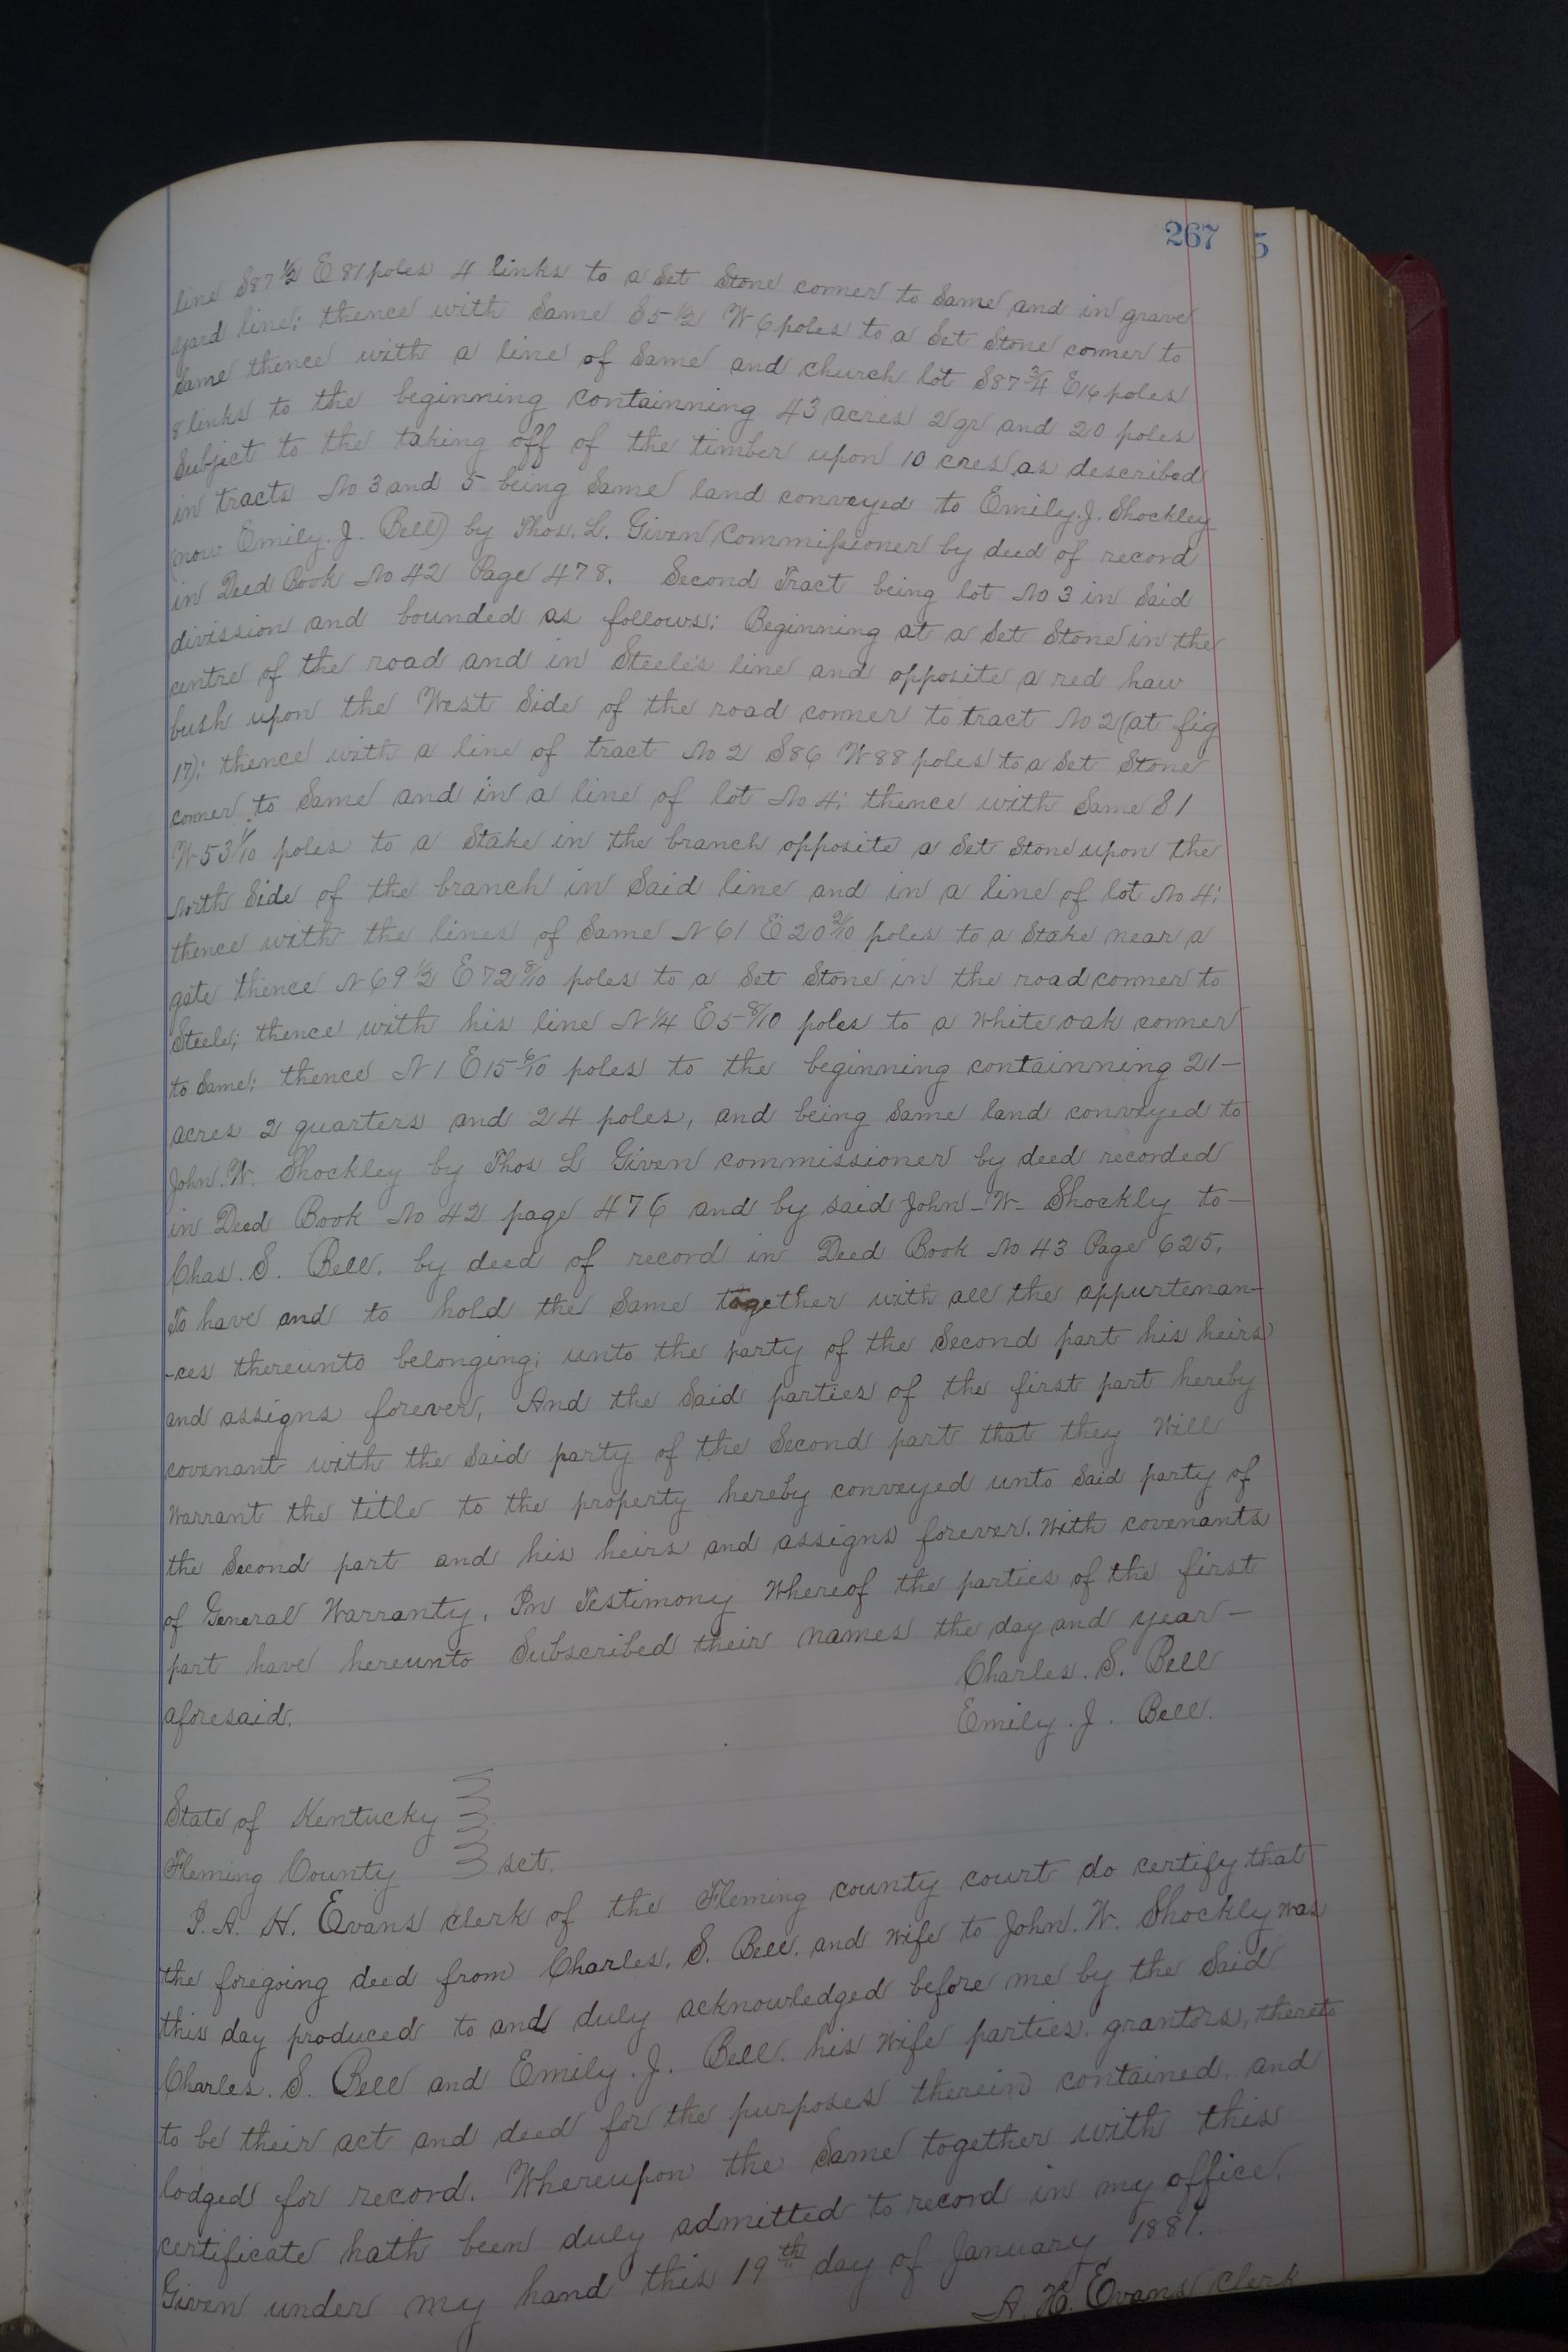 267
5
line S87 1/2 E 81 poles 4 links to a Set Stone corner to Same and in grave
yard line; thence with Same S5 1/2 W 6 poles to a Set Stone corner to
Same thence with a line of Same and church lot S87 3/4 E 16 poles
8 links to the beginning containning 43 acres 2 qr and 20 poles
Subject to the taking off of the timber upon 10 cres as described
in tracts No 3 and 5 being Same land conveyed to Emily. J. Shockley
(now Emily. J. Bell) by Thos. L. Given Commissioner by deed of record
in Deed Book No 42 Page 478. Second Tract being lot No 3 in Said
division and bounded as follows: Beginning at a Set Stone in the
centre of the road and in Steele's line and opposite a red haw
bush upon the West Side of the road corner to tract No 2 (at fig
17): thence with a line of tract No 2 S86 W 88 poles to a Set Stone
corner to Same and in a line of lot No 4: thence with Same S1
W 53 1/10 poles to a Stake in the branch opposite a Set Stone upon the
North Side of the branch in Said line and in a line of lot No 4:
thence with the lines of Same N 61 E 20 2/10 poles to a Stake near a
gate thence N 69 1/2 E 72 8/10 poles to a Set Stone in the road corner to
Steele; thence with his line N 1/4 E 5 8/10 poles to a White oak corner
to Same: thence N 1 E 15 6/10 poles to the beginning containning 21-
acres 2 quarters and 24 poles, and being Same land conveyed to
John. W. Shockley by Thos L Given commissioner by deed recorded
in Deed Book No 42 page 476 and by said John-W- Shockly to-
Chas. S. Bell. by deed of record in Deed Book No 43 Page 625.
To have and to hold the Same together with all the appurtenan-
-ces thereunto belonging; unto the party of the Second part his heirs
and assigns forever, And the Said parties of the first part hereby
covenant with the Said party of the Second part that they Will
Warrant the title to the property hereby conveyed unto Said party of
the Second part and his heirs and assigns forever. With covenants
of General Warranty, In Testimony Whereof the parties of the first
part have hereunto Subscribed their names the day and year-
aforesaid.
Charles. S. Bell
Emily. J. Bell.
State of Kentucky
Fleming County sct.
I. A. H. Evans clerk of the Fleming county court do certify that
the foregoing deed from Charles, S. Bell. and Wife to John. W. Shockly was
this day produced to and duly acknowledged before me by the Said
Charles. S. Bell and Emily. J. Bell. his Wife parties. grantors, thereto
to be their act and deed for the purposes therein contained. and
lodged for record. Whereupon the Same together with this
certificate hath been duly admitted to record in my office.
Given under my hand this 19th day of January 1881.
A. H. Evans Clerk